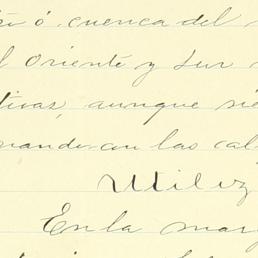 ó cuenca del
Oriente y Sur
tivas, aunque sie
ando con las cal
Utiliz
En la marg